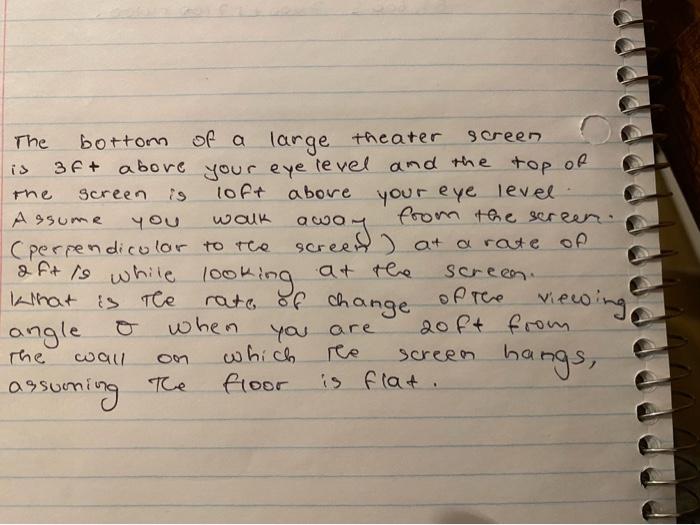 The bottom of a large theater screen
is 3ft above your eye level and the top of
the screen is 10ft above your eye level.
Assume you walk away from the screen.
(perpendicular to the screen) at a rate of
2ft/s while looking at the screen.
What is the rate of change of the viewing
angle θ when you are 20ft from
the wall on which the screen hangs,
assuming the floor is flat.